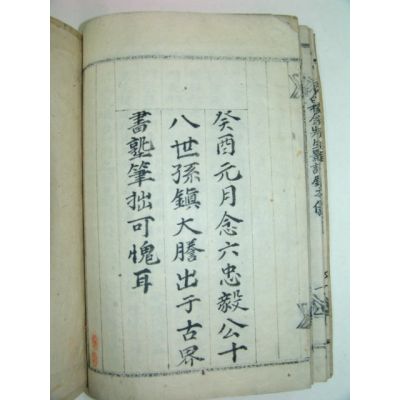 癸酉元月念六忠毅公十
八世孫鎮大謄出于古界
書塾筆拙可愧耳